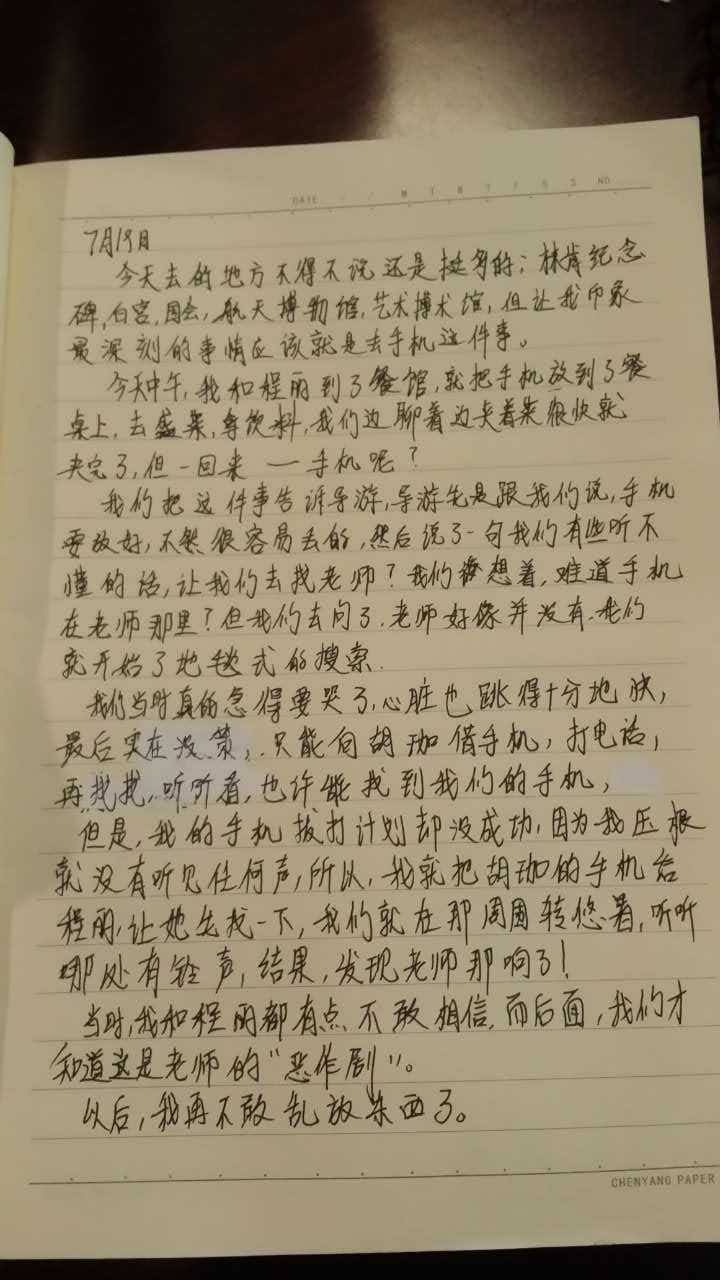 DATE / / M T W T F S S NO.
7月19日
今天去的地方不得不说还是挺多的；林肯纪念
碑,白宫,国会,航天博物馆,艺术搏术馆,但让我印象
最深刻的事情应该就是丢手机这件事。
今天中午,我和程丽到了餐馆,就把手机放到了餐
桌上,去盛菜,拿饮料,我们边聊着边夹着菜很快就
夹完了,但一回来——手机呢？
我们把这件事告诉导游,导游先是跟我们说,手机
要放好,不然很容易丢的,然后说了一句我们有些听不
懂的话,让我们去找老师？我们想着,难道手机
在老师那里？但我们去问了,老师好像并没有.我们
就开始了地毯式的搜索.
我们当时真的急得要哭了,心脏也跳得十分地快,
最后实在没策,只能向胡珈借手机,打电话,
再找找,听听看,也许能找到我们的手机,
但是,我的手机拨打计划却没成功,因为我压根
就没有听见任何声,所以,我就把胡珈的手机给
程丽,让她先找一下,我们就在那周围转悠着,听听
哪处有铃声,结果,发现老师那响了!
当时,我和程丽都有点不敢相信,而后面,我们才
知道这是老师的“恶作剧”。
以后,我再不敢乱放东西了。
CHENYANG PAPER